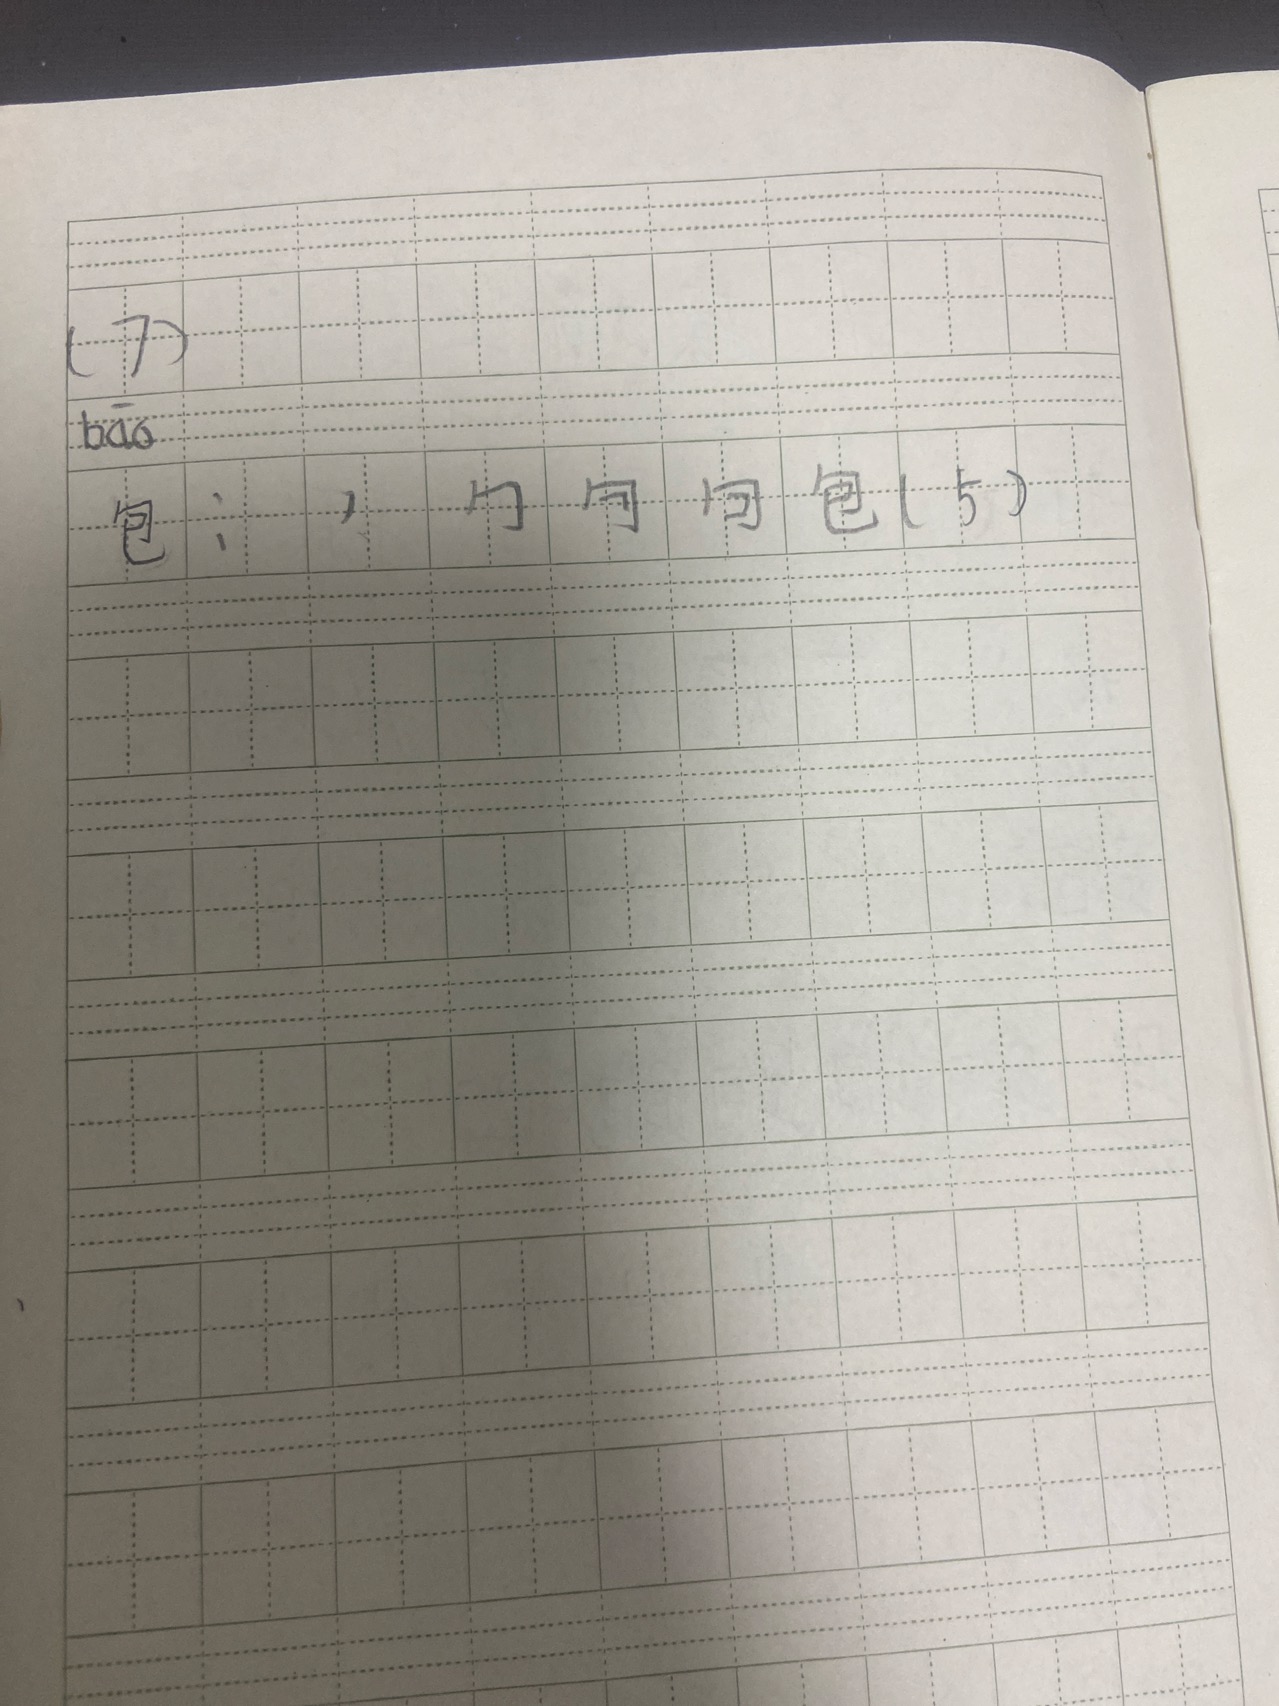 (7)
bāo
包：丿勹勹𠃌包(5)